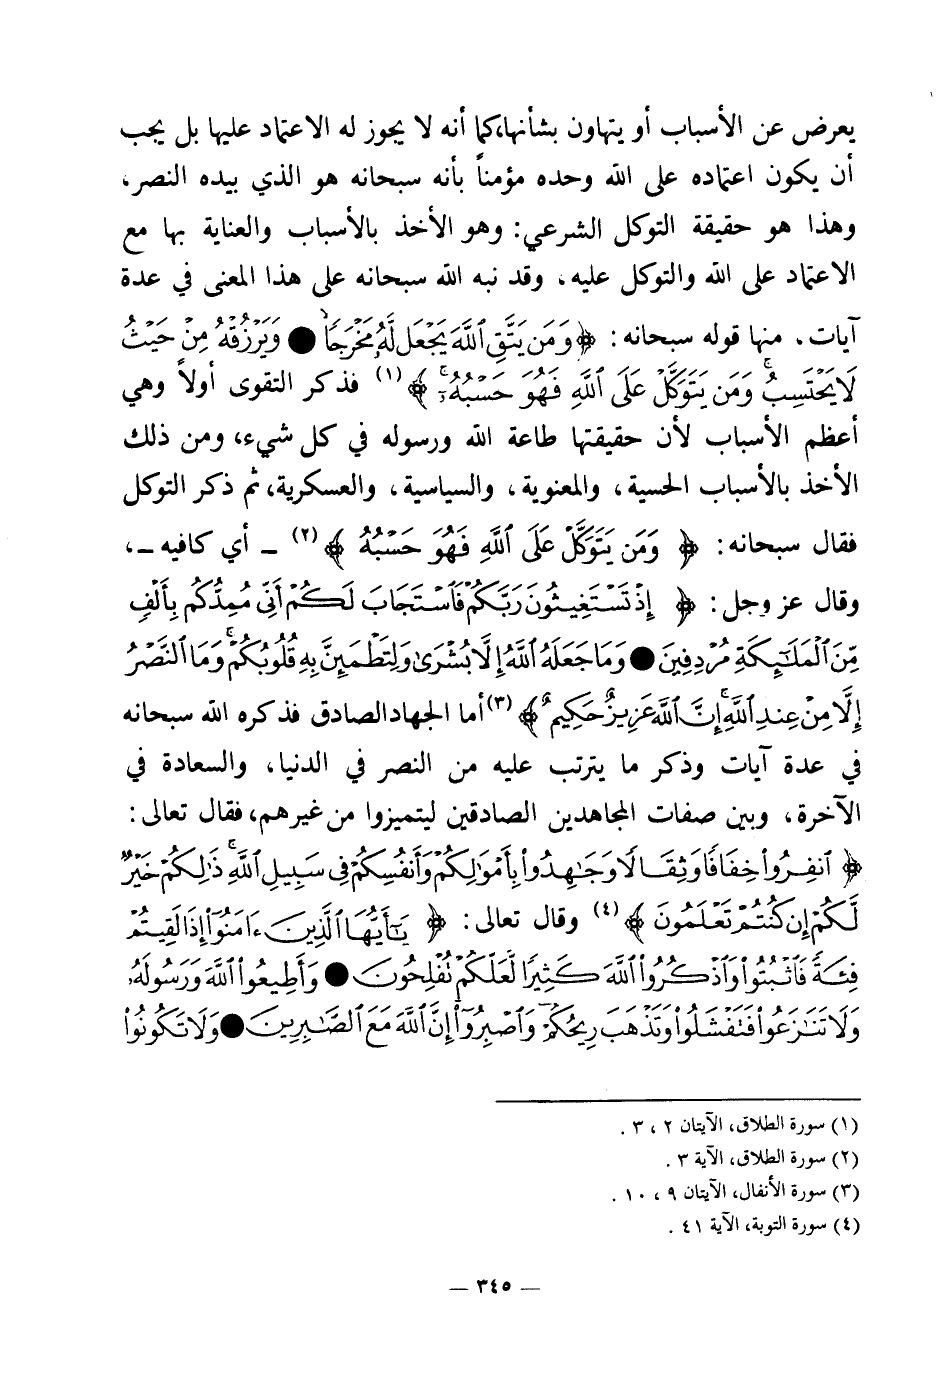 يعرض عن الأسباب أو يتهاون بشأنها،كما أنه لا يجوز له الاعتماد عليها بل يجب
أن يكون اعتماده على الله وحده مؤمناً بأنه سبحانه هو الذي بيده النصر،
وهذا هو حقيقة التوكل الشرعي: وهو الأخذ بالأسباب والعناية بها مع
الاعتماد على الله والتوكل عليه، وقد نبه الله سبحانه على هذا المعنى في عدة
آيات. منها قوله سبحانه: ﴿ وَمَن يَتَّقِ ٱللَّهَ يَجْعَل لَّهُۥ مَخْرَجًا ● وَيَرْزُقْهُ مِنْ حَيْثُ
لَا يَحْتَسِبُ ۚ وَمَن يَتَوَكَّلْ عَلَى ٱللَّهِ فَهُوَ حَسْبُهُۥٓ ۚ ﴾ (١) فذكر التقوى أولاً وهي
أعظم الأسباب لأن حقيقتها طاعة الله ورسوله في كل شيء، ومن ذلك
الأخذ بالأسباب الحسية، والمعنوية، والسياسية، والعسكرية، ثم ذكر التوكل
فقال سبحانه: ﴿ وَمَن يَتَوَكَّلْ عَلَى ٱللَّهِ فَهُوَ حَسْبُهُ ﴾ (٢) ـ أي كافيه ـ،
وقال عز وجل: ﴿ إِذْ تَسْتَغِيثُونَ رَبَّكُمْ فَٱسْتَجَابَ لَكُمْ أَنِّى مُمِدُّكُم بِأَلْفٍ
مِّنَ ٱلْمَلَٰٓئِكَةِ مُرْدِفِينَ ● وَمَا جَعَلَهُ ٱللَّهُ إِلَّا بُشْرَىٰ وَلِتَطْمَئِنَّ بِهِۦ قُلُوبُكُمْ ۚ وَمَا ٱلنَّصْرُ
إِلَّا مِنْ عِندِ ٱللَّهِ ۚ إِنَّ ٱللَّهَ عَزِيزٌ حَكِيمٌ ﴾ (٣) أما الجهاد الصادق فذكره الله سبحانه
في عدة آيات وذكر ما يترتب عليه من النصر في الدنيا، والسعادة في
الآخرة، وبين صفات المجاهدين الصادقين ليتميزوا من غيرهم، فقال تعالى:
﴿ ٱنفِرُوا۟ خِفَافًا وَثِقَالًا وَجَٰهِدُوا۟ بِأَمْوَٰلِكُمْ وَأَنفُسِكُمْ فِى سَبِيلِ ٱللَّهِ ۚ ذَٰلِكُمْ خَيْرٌ
لَّكُمْ إِن كُنتُمْ تَعْلَمُونَ ﴾ (٤) وقال تعالى: ﴿ يَٰٓأَيُّهَا ٱلَّذِينَ ءَامَنُوٓا۟ إِذَا لَقِيتُمْ
فِئَةً فَٱثْبُتُوا۟ وَٱذْكُرُوا۟ ٱللَّهَ كَثِيرًا لَّعَلَّكُمْ تُفْلِحُونَ ● وَأَطِيعُوا۟ ٱللَّهَ وَرَسُولَهُۥ
وَلَا تَنَٰزَعُوا۟ فَتَفْشَلُوا۟ وَتَذْهَبَ رِيحُكُمْ ۖ وَٱصْبِرُوٓا۟ ۚ إِنَّ ٱللَّهَ مَعَ ٱلصَّٰبِرِينَ ● وَلَا تَكُونُوا۟
(١) سورة الطلاق، الآيتان ٢ ، ٣ .
(٢) سورة الطلاق، الآية ٣ .
(٣) سورة الأنفال، الآيتان ٩ ، ١٠ .
(٤) سورة التوبة، الآية ٤١ .
— ٣٤٥ —